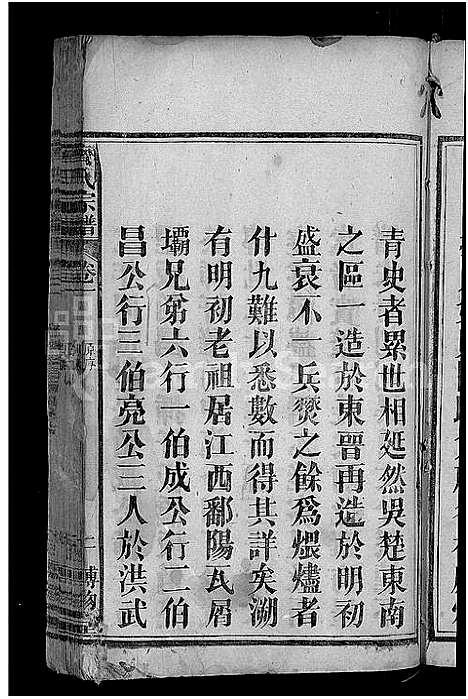 青史者累世相延然吳楚東南
之區一造於東晋再造於明初
盛衰不一兵燹之餘為煨燼者
什九難以悉數而得其詳矣溯
有明初老祖居江西鄱陽瓦屑
壩兄弟六行一伯成公行二伯
昌公行三伯亮公三人於洪武
氏宗譜
卷一
二